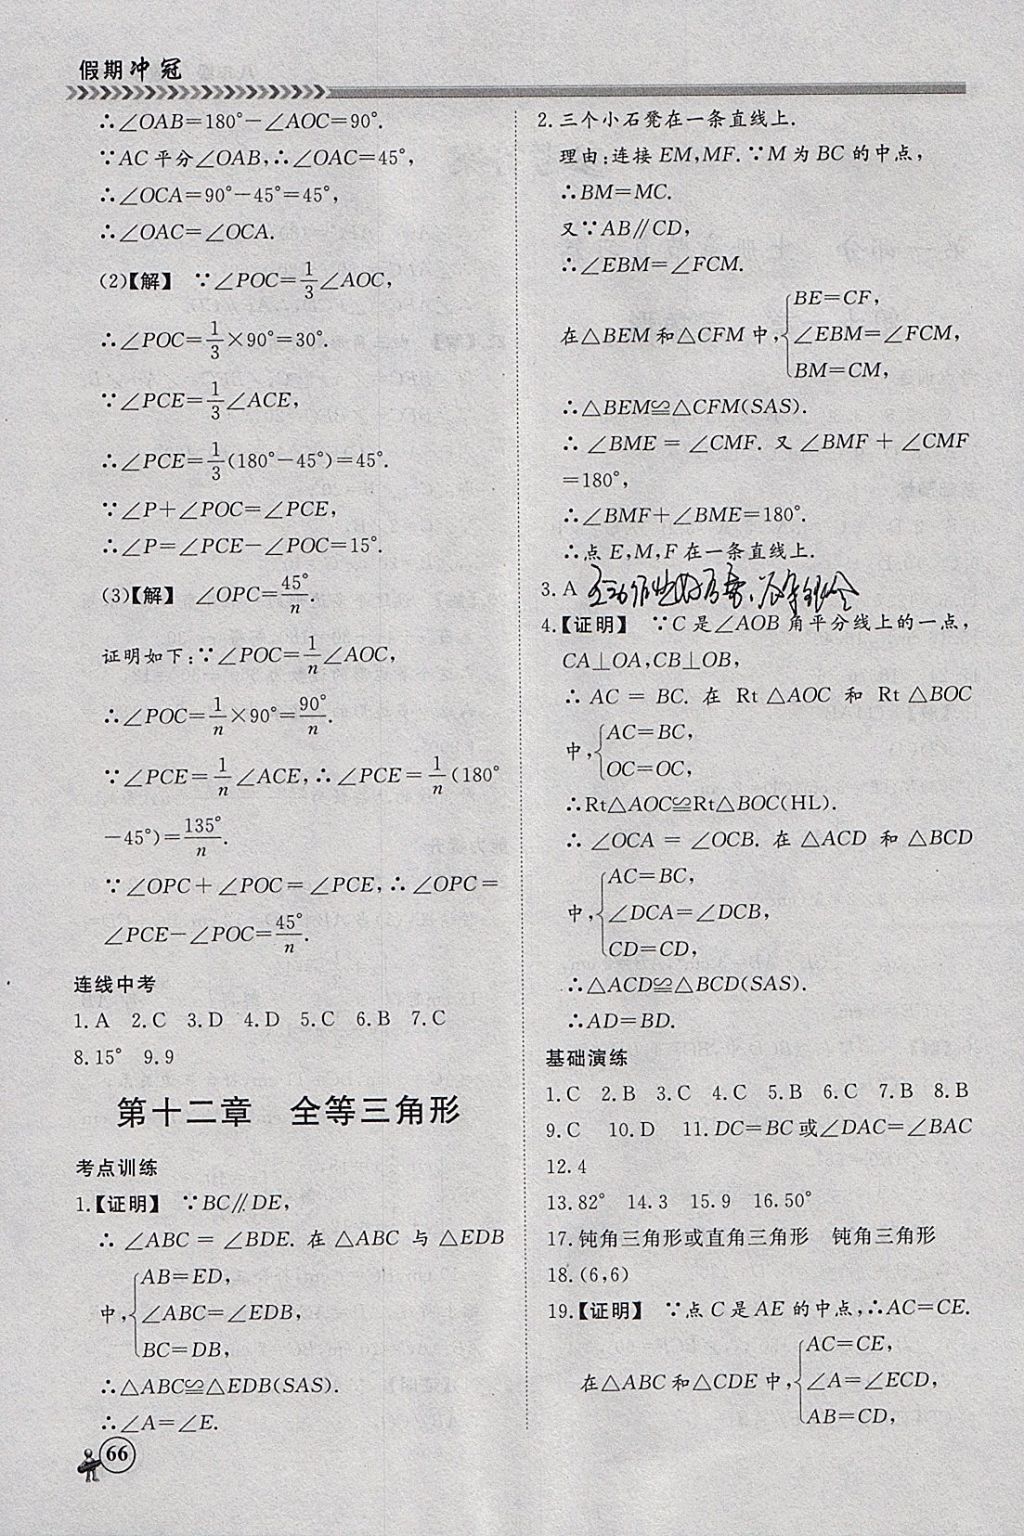 假期冲冠
∴∠OAB=180°-∠AOC=90°.
∵AC平分∠OAB,∴∠OAC=45°,
∴∠OCA=90°-45°=45°,
∴∠OAC=∠OCA.
(2)【解】 ∵∠POC=1/3∠AOC,
∴∠POC=1/3×90°=30°.
∵∠PCE=1/3∠ACE,
∴∠PCE=1/3(180°-45°)=45°.
∵∠P+∠POC=∠PCE,
∴∠P=∠PCE-∠POC=15°.
(3)【解】 ∠OPC=45°/n.
证明如下:∵∠POC=1/n∠AOC,
∴∠POC=1/n×90°=90°/n.
∵∠PCE=1/n∠ACE,∴∠PCE=1/n(180°
-45°)=135°/n.
∵∠OPC+∠POC=∠PCE,∴∠OPC=
∠PCE-∠POC=45°/n.
连线中考
1.A 2.C 3.D 4.D 5.C 6.B 7.C
8.15° 9.9
第十二章 全等三角形
考点训练
1.【证明】 ∵BC∥DE,
∴∠ABC=∠BDE.在△ABC与△EDB
AB=ED,
中,∠ABC=∠EDB,
BC=DB,
∴△ABC≌△EDB(SAS).
∴∠A=∠E.
66
2.三个小石凳在一条直线上.
理由:连接EM,MF.∵M为BC的中点,
∴BM=MC.
又∵AB∥CD,
∴∠EBM=∠FCM.
BE=CF,
在△BEM和△CFM中,∠EBM=∠FCM,
BM=CM,
∴△BEM≌△CFM(SAS).
∴∠BME=∠CMF.又∠BMF+∠CMF
=180°,
∴∠BMF+∠BME=180°.
∴点E,M,F在一条直线上.
3.A
4.【证明】 ∵C是∠AOB角平分线上的一点,
CA⊥OA,CB⊥OB,
∴AC=BC.在Rt△AOC和Rt△BOC
中,AC=BC,
OC=OC,
∴Rt△AOC≌Rt△BOC(HL).
∴∠OCA=∠OCB.在△ACD和△BCD
AC=BC,
中,∠DCA=∠DCB,
CD=CD,
∴△ACD≌△BCD(SAS).
∴AD=BD.
基础演练
1.C 2.B 3.C 4.C 5.B 6.C 7.B 8.B
9.C 10.D 11.DC=BC或∠DAC=∠BAC
12.4
13.82° 14.3 15.9 16.50°
17.钝角三角形或直角三角形 钝角三角形
18.(6,6)
19.【证明】 ∵点C是AE的中点,∴AC=CE.
AC=CE,
在△ABC和△CDE中,∠A=∠ECD,
AB=CD,